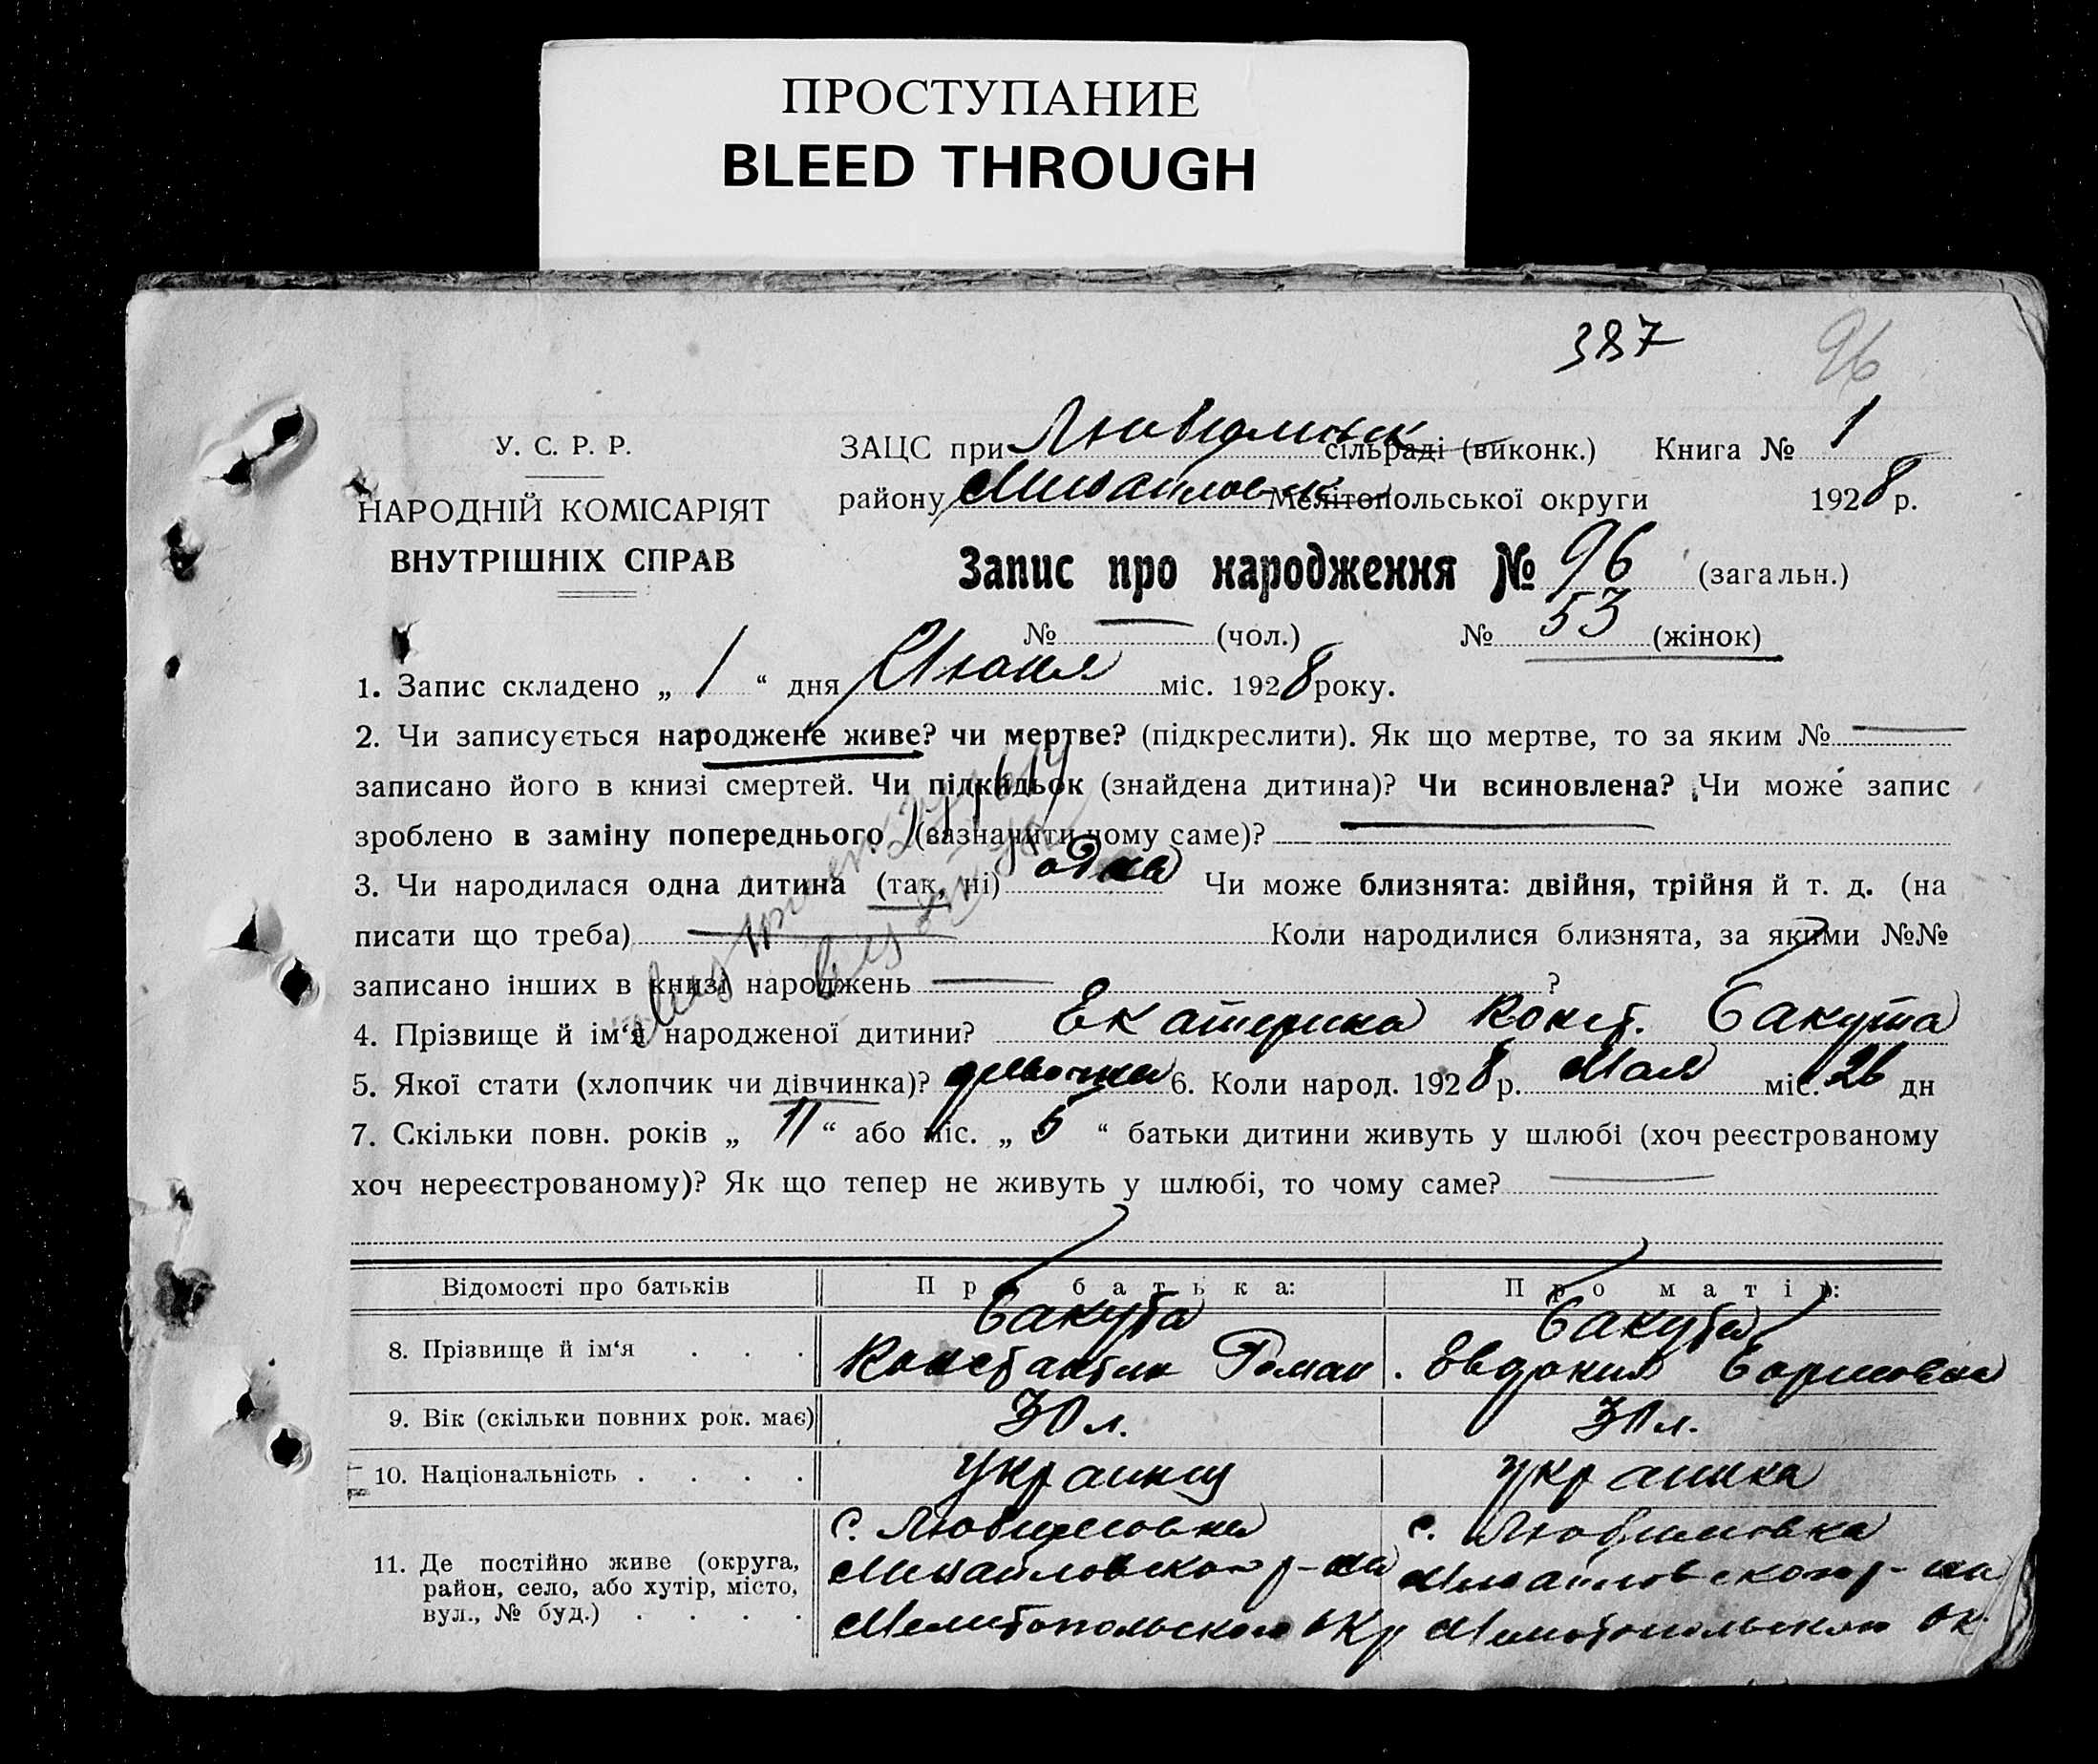 ПРОСТУПАНИЕ
BLEED THROUGH
387
96
У. С. Р. Р.
НАРОДНІЙ КОМІСАРІЯТ
ВНУТРІШНІХ СПРАВ
ЗАЦС при Любимовск сільраді (виконк.) Книга № 1
району Михайловск Мелітопольської округи 1928 р.
Запис про народження № 96 (загальн.)
№ — (чол.) № 53 (жінок)
1. Запис складено „ 1 “ дня Июня міс. 1928 року.
2. Чи записується народжене живе? чи мертве? (підкреслити). Як що мертве, то за яким № —
записано його в книзі смертей. Чи підкидьок (знайдена дитина)? Чи всиновлена? Чи може запис
зроблено в заміну попереднього (зазначити чому саме)?
3. Чи народилася одна дитина (так, ні) одна Чи може близнята: двійня, трійня й т. д. (на
писати що треба) — Коли народилися близнята, за якими №№
записано інших в книзі народжень — ?
4. Прізвище й ім‘я народженої дитини? Екатерина Конст. Бакута
5. Якої стати (хлопчик чи дівчинка)? девочка 6. Коли народ. 1928 р. Мая міс. 26 дн
7. Скільки повн. років „ 11 “ або міс. „ 5 “ батьки дитини живуть у шлюбі (хоч реєстрованому
хоч нереєстрованому)? Як що тепер не живуть у шлюбі, то чому саме? —
Відомості про батьків Про батька: Про матір:
8. Прізвище й ім‘я . . . Бакута Константин Роман. Бакута Евдокия Борисовна
9. Вік (скільки повних рок. має) 30 л. 30 л.
10. Національність . . . . украинец украинка
11. Де постійно живе (округа,
район, село, або хутір, місто,
вул., № буд.) . . . .
с. Любимовка
Михайловского р-на
Мелитопольского окр
с. Любимовка
Михайловского р-на
Мелитопольского ок